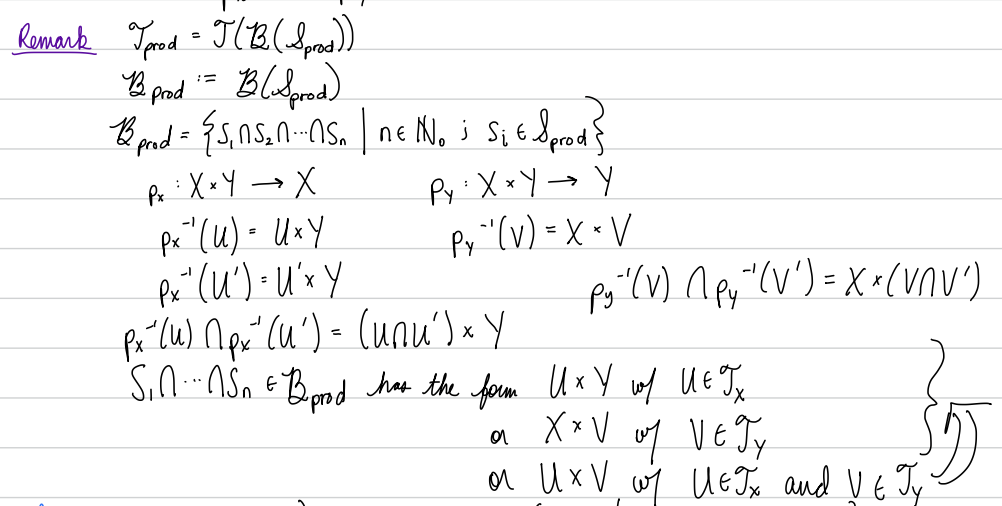 Remark 𝒯_prod = 𝒯(ℬ(𝒮_prod))
ℬ_prod := ℬ(𝒮_prod)
ℬ_prod = {S₁∩S₂∩···∩Sₙ | n ∈ ℕ₀ ; Sᵢ ∈ 𝒮_prod}
p_X : X × Y → X p_Y : X × Y → Y
p_X⁻¹(U) = U × Y p_Y⁻¹(V) = X × V
p_X⁻¹(U') = U' × Y p_Y⁻¹(V) ∩ p_Y⁻¹(V') = X × (V∩V')
p_X⁻¹(U) ∩ p_X⁻¹(U') = (U∩U') × Y
S₁∩···∩Sₙ ∈ ℬ_prod has the form U × Y w/ U ∈ 𝒯_X
or X × V w/ V ∈ 𝒯_Y
or U × V w/ U ∈ 𝒯_X and V ∈ 𝒯_Y